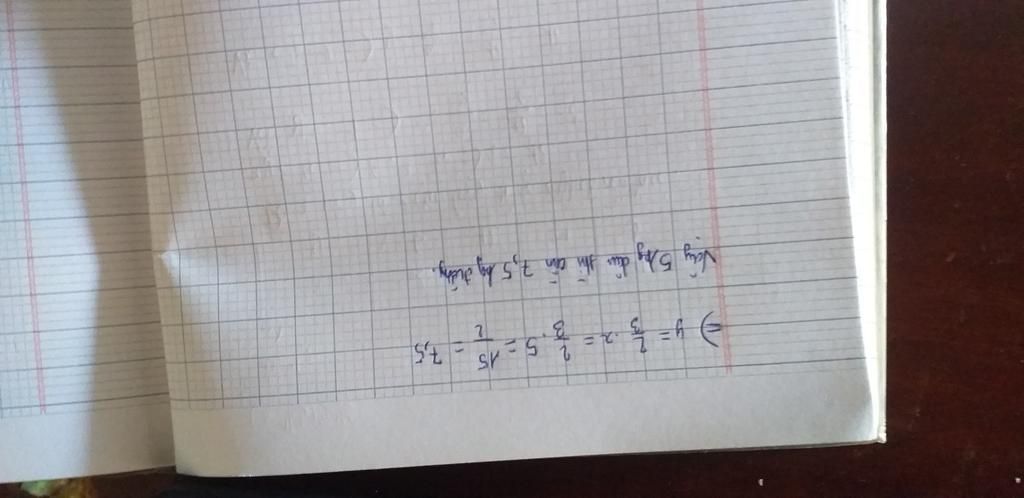 ⇒ y = 2/3 . x = 2/3 . 5 = 15/2 = 7,5
Vậy 5kg dâu thì cần 7,5 kg đường.